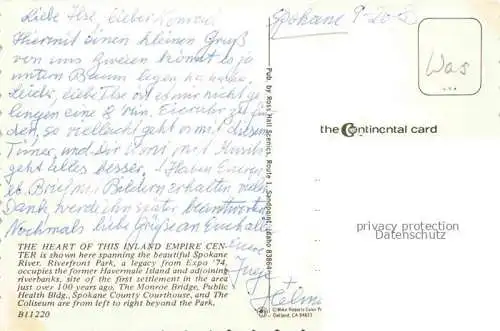 Liebe Ilse, lieber Konrad
Hiermit einen kleinen Gruß
von uns Zweien könnt es ja
untern Baum legen ha ha ha.
Leider, liebe Ilse ist es mir nicht ge
lingen eine 8 Min. Eieruhr zu fin
den, so vielleicht geht es mit diesem
Timer, und Dir Konni mit Musik
geht alles besser. Haben Euren
lb. Brief mit Bildern erhalten vielen
Dank, werde ihn später beantworten
Nochmals liebe Grüße an Euch alle
Eure
Inge
+
Helmut
THE HEART OF THIS INLAND EMPIRE CEN-
TER is shown here spanning the beautiful Spokane
River. Riverfront Park, a legacy from Expo '74,
occupies the former Havermale Island and adjoining
riverbanks, site of the first settlement in the area
just over 100 years ago. The Monroe Bridge, Public
Health Bldg., Spokane County Courthouse, and The
Coliseum are from left to right beyond the Park.
B11220
Pub. by Ross Hall Scenics, Route 1, Sandpoint, Idaho 83864
Spokane 9-20-
Was
the Continental card
privacy protection
Oakland, CA 94623